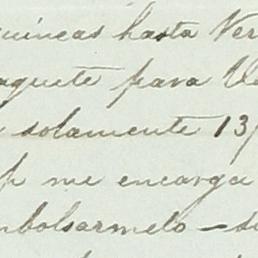 uineas hasta Ver
aquete para Ve
solamente 13
p me encarga
mbolsarmelo — s